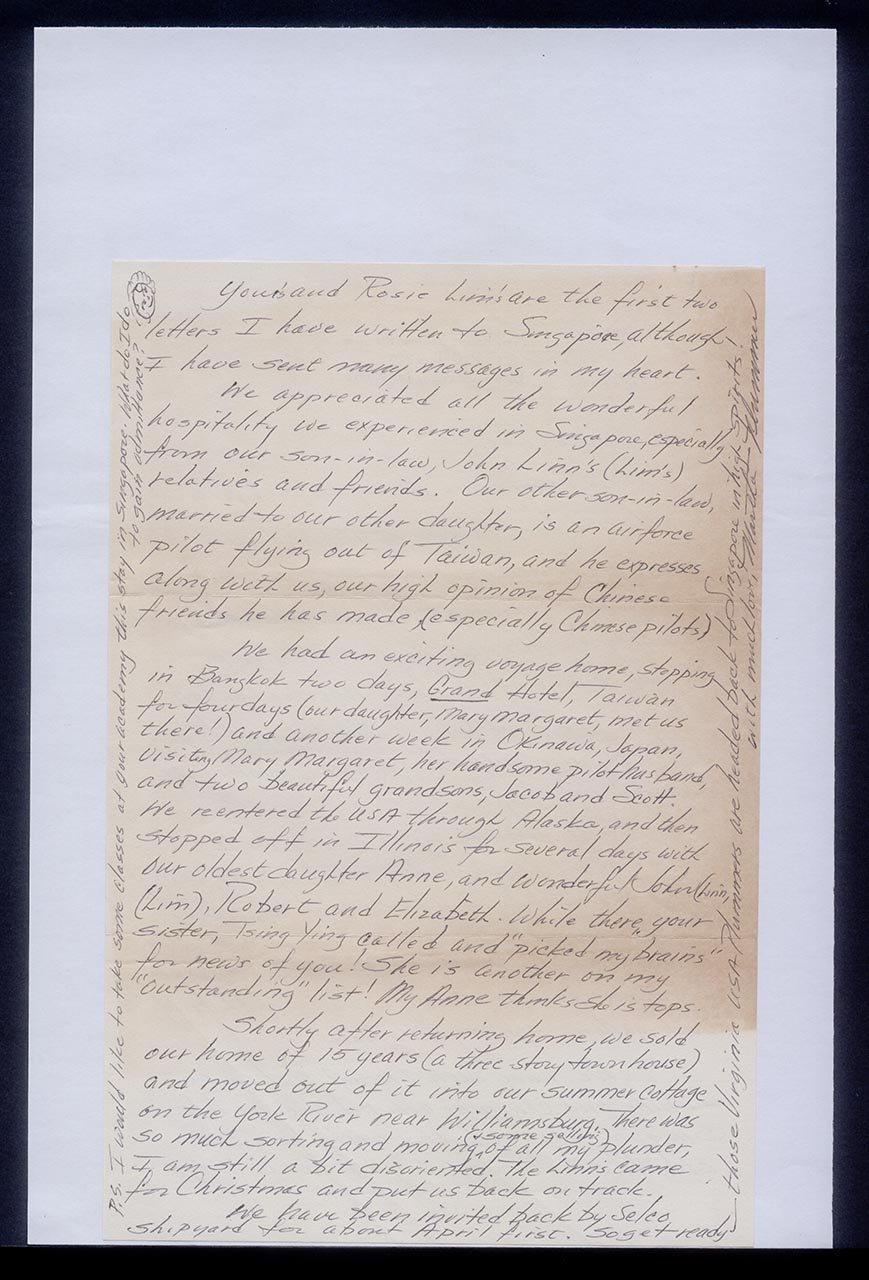 Your's and Rosie Lim's are the first two
letters I have written to Singapore, although
I have sent many messages in my heart.
We appreciated all the wonderful
hospitality we experienced in Singapore, especially
from our son-in-law, John Linn's (Lim's)
relatives and friends. Our other son-in-law,
married to our other daughter, is an airforce
pilot flying out of Taiwan, and he expresses
along with us, our high opinion of Chinese
friends he has made, (especially Chinese pilots)
We had an exciting voyage home, stopping
in Bangkok two days, Grand Hotel, Taiwan
for four days (our daughter, Mary Margaret, met us
there!) and another week in Okinawa, Japan,
visiting Mary Margaret, her handsome pilot husband,
and two beautiful grandsons, Jacob and Scott.
We reentered the USA through Alaska, and then
stopped off in Illinois for several days with
our oldest daughter Anne, and wonderful John (Linn,
(Lim), Robert and Elizabeth. While there, your
sister, Tsing Ying called and "picked my brains"
for news of you! She is another on my
"outstanding" list! My Anne thinks she is tops.
Shortly after returning home, we sold
our home of 15 years (a three story townhouse)
and moved out of it into our summer cottage
on the York River near Williamsburg. There was
so much sorting and moving (& some selling) of all my plunder,
I am still a bit disoriented. The Linns came
for Christmas and put us back on track.
We have been invited back by Selco
shipyard for about April first. So get ready
those Virginia USA Plummers are headed back to Singapore in high spirits!
with much love, Martha Plummer
P.S. I would like to take some classes at your academy this stay in Singapore. What do I do
to gain admittance?